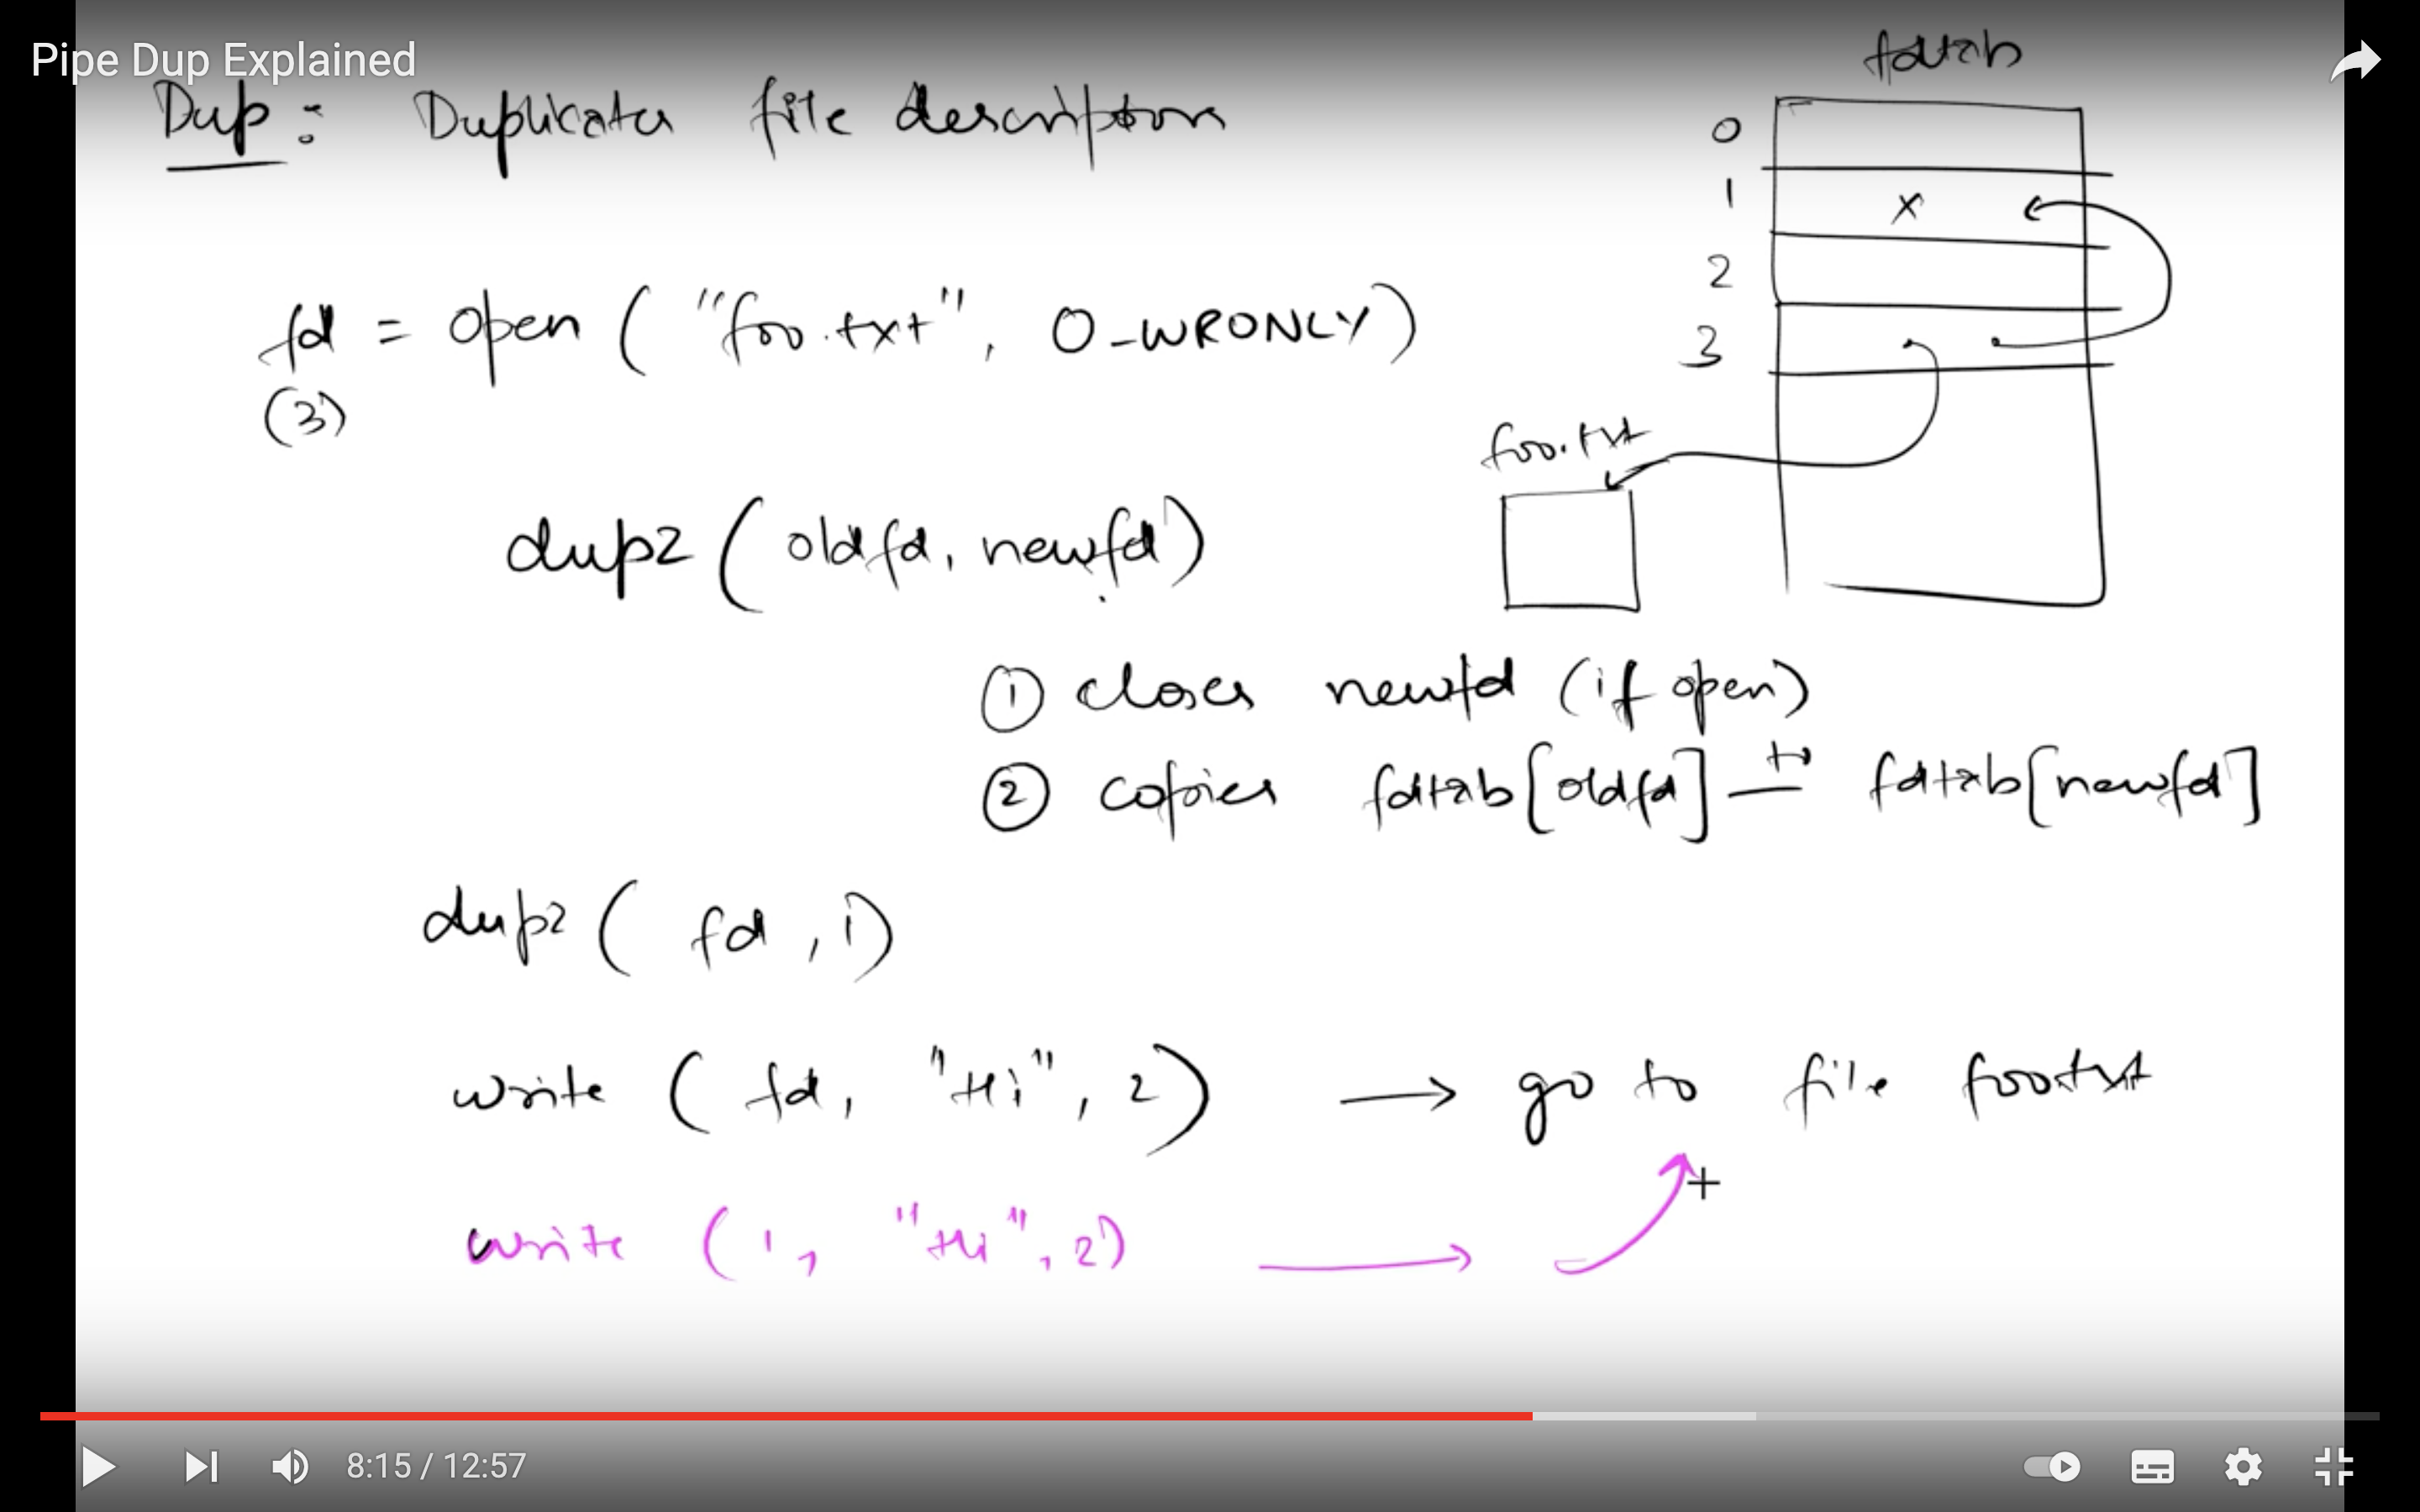 Pipe Dup Explained
fdtab
Dup: Duplicates file descriptors
0
1 x
2
3
fd = open ( "foo.txt", O_WRONLY)
(3)
foo.txt
dup2 ( oldfd, newfd)
① closes newfd (if open)
② copies fdtab[oldfd] to fdtab[newfd]
dup2 ( fd , 1)
write ( fd, "Hi", 2) → go to file foo.txt
write ( 1, "Hi", 2) →
8:15 / 12:57